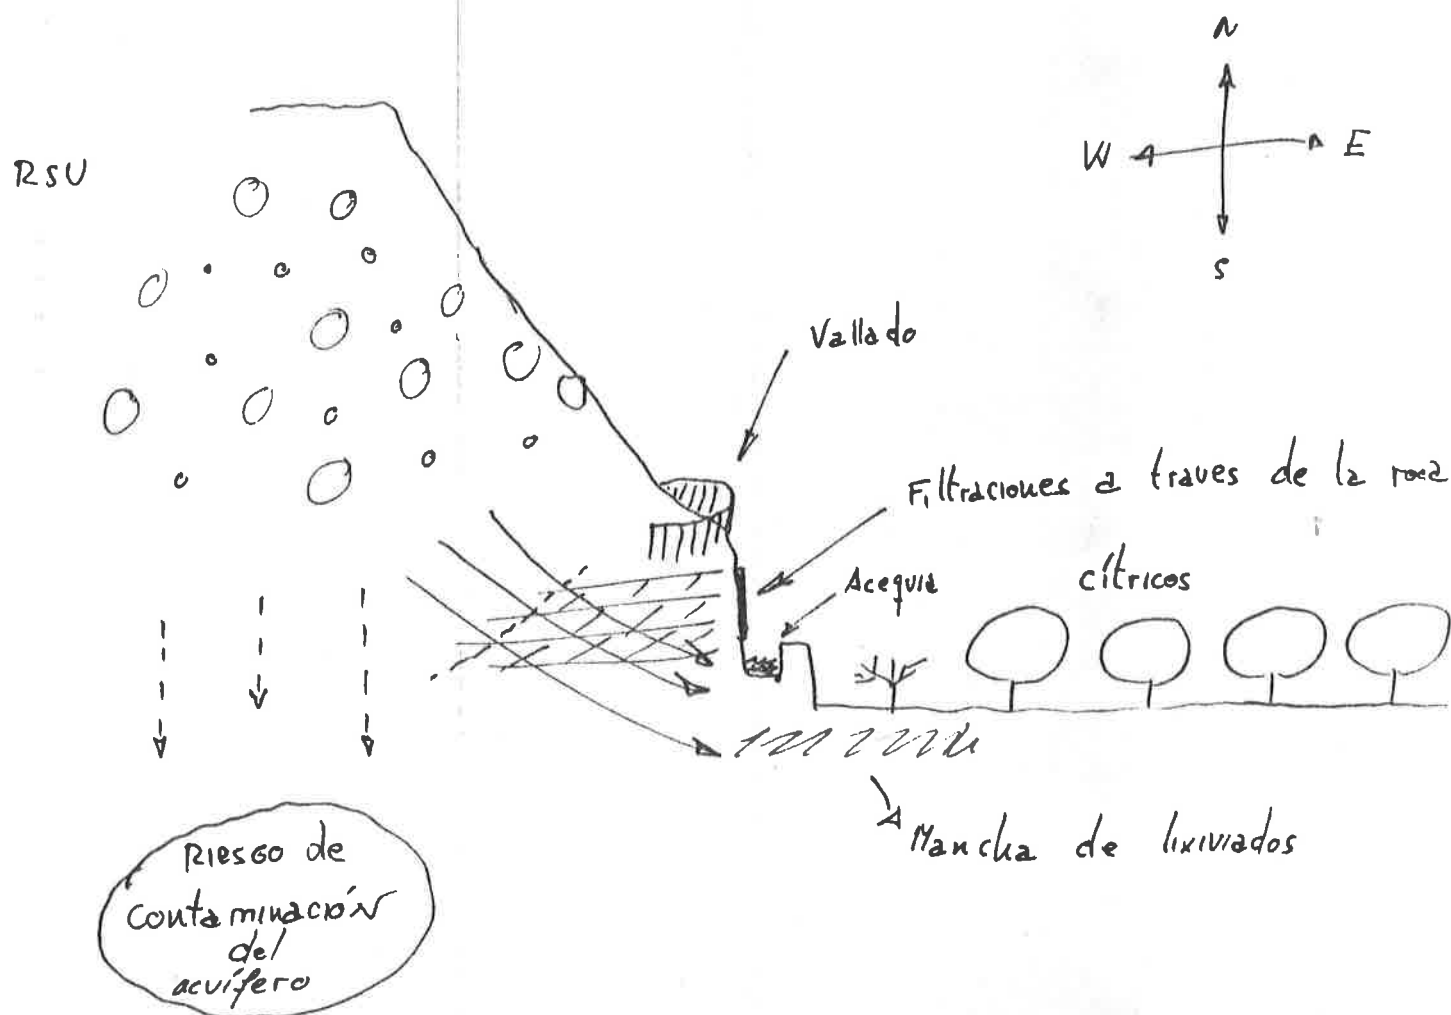 N
W E
S
RSU
Vallado
Filtraciones a traves de la roca
Acequia
cítricos
Mancha de lixiviados
Riesgo de
contaminación
del
acuífero